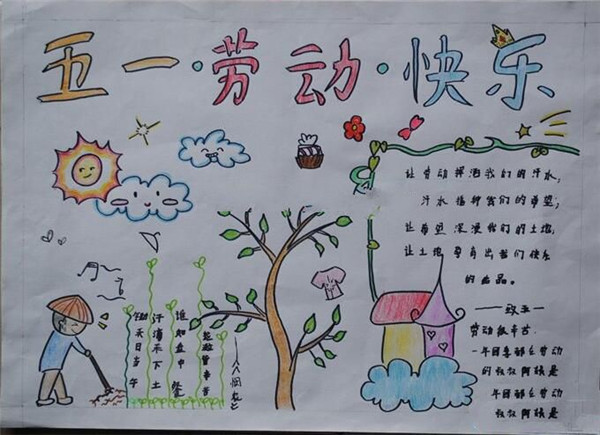 五一·劳动·快乐
让劳动挥洒我们的汗水,
汗水播种我们的希望,
让希望深浸我们的土地,
让土地孕育出我们快乐
的品。
——致五一
劳动辛苦
一年四季都在劳动
的叔叔阿姨是
年四季都在劳动
叔叔阿姨是
锄禾日当午
汗滴禾下土
谁知盘中餐
粒粒皆辛苦
——《悯农》